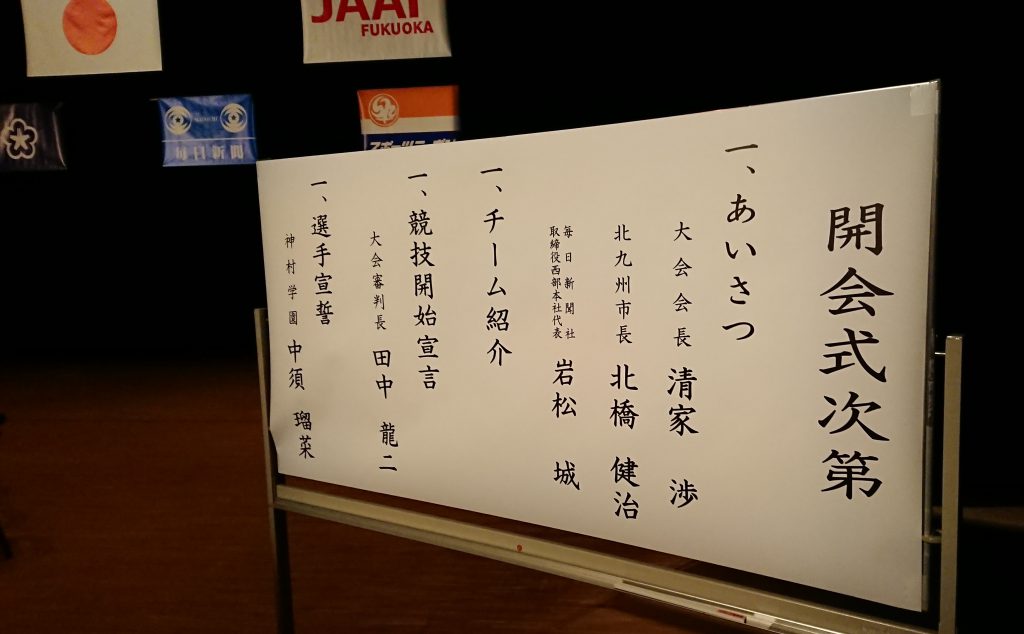 JAAF
FUKUOKA
毎日新聞
開会式次第
一、あいさつ
大会会長 清家 渉
北九州市長 北橋 健治
毎日新聞社
取締役西部本社代表 岩松 城
一、チーム紹介
一、競技開始宣言
大会審判長 田中 龍二
一、選手宣誓
神村学園 中須 瑠菜